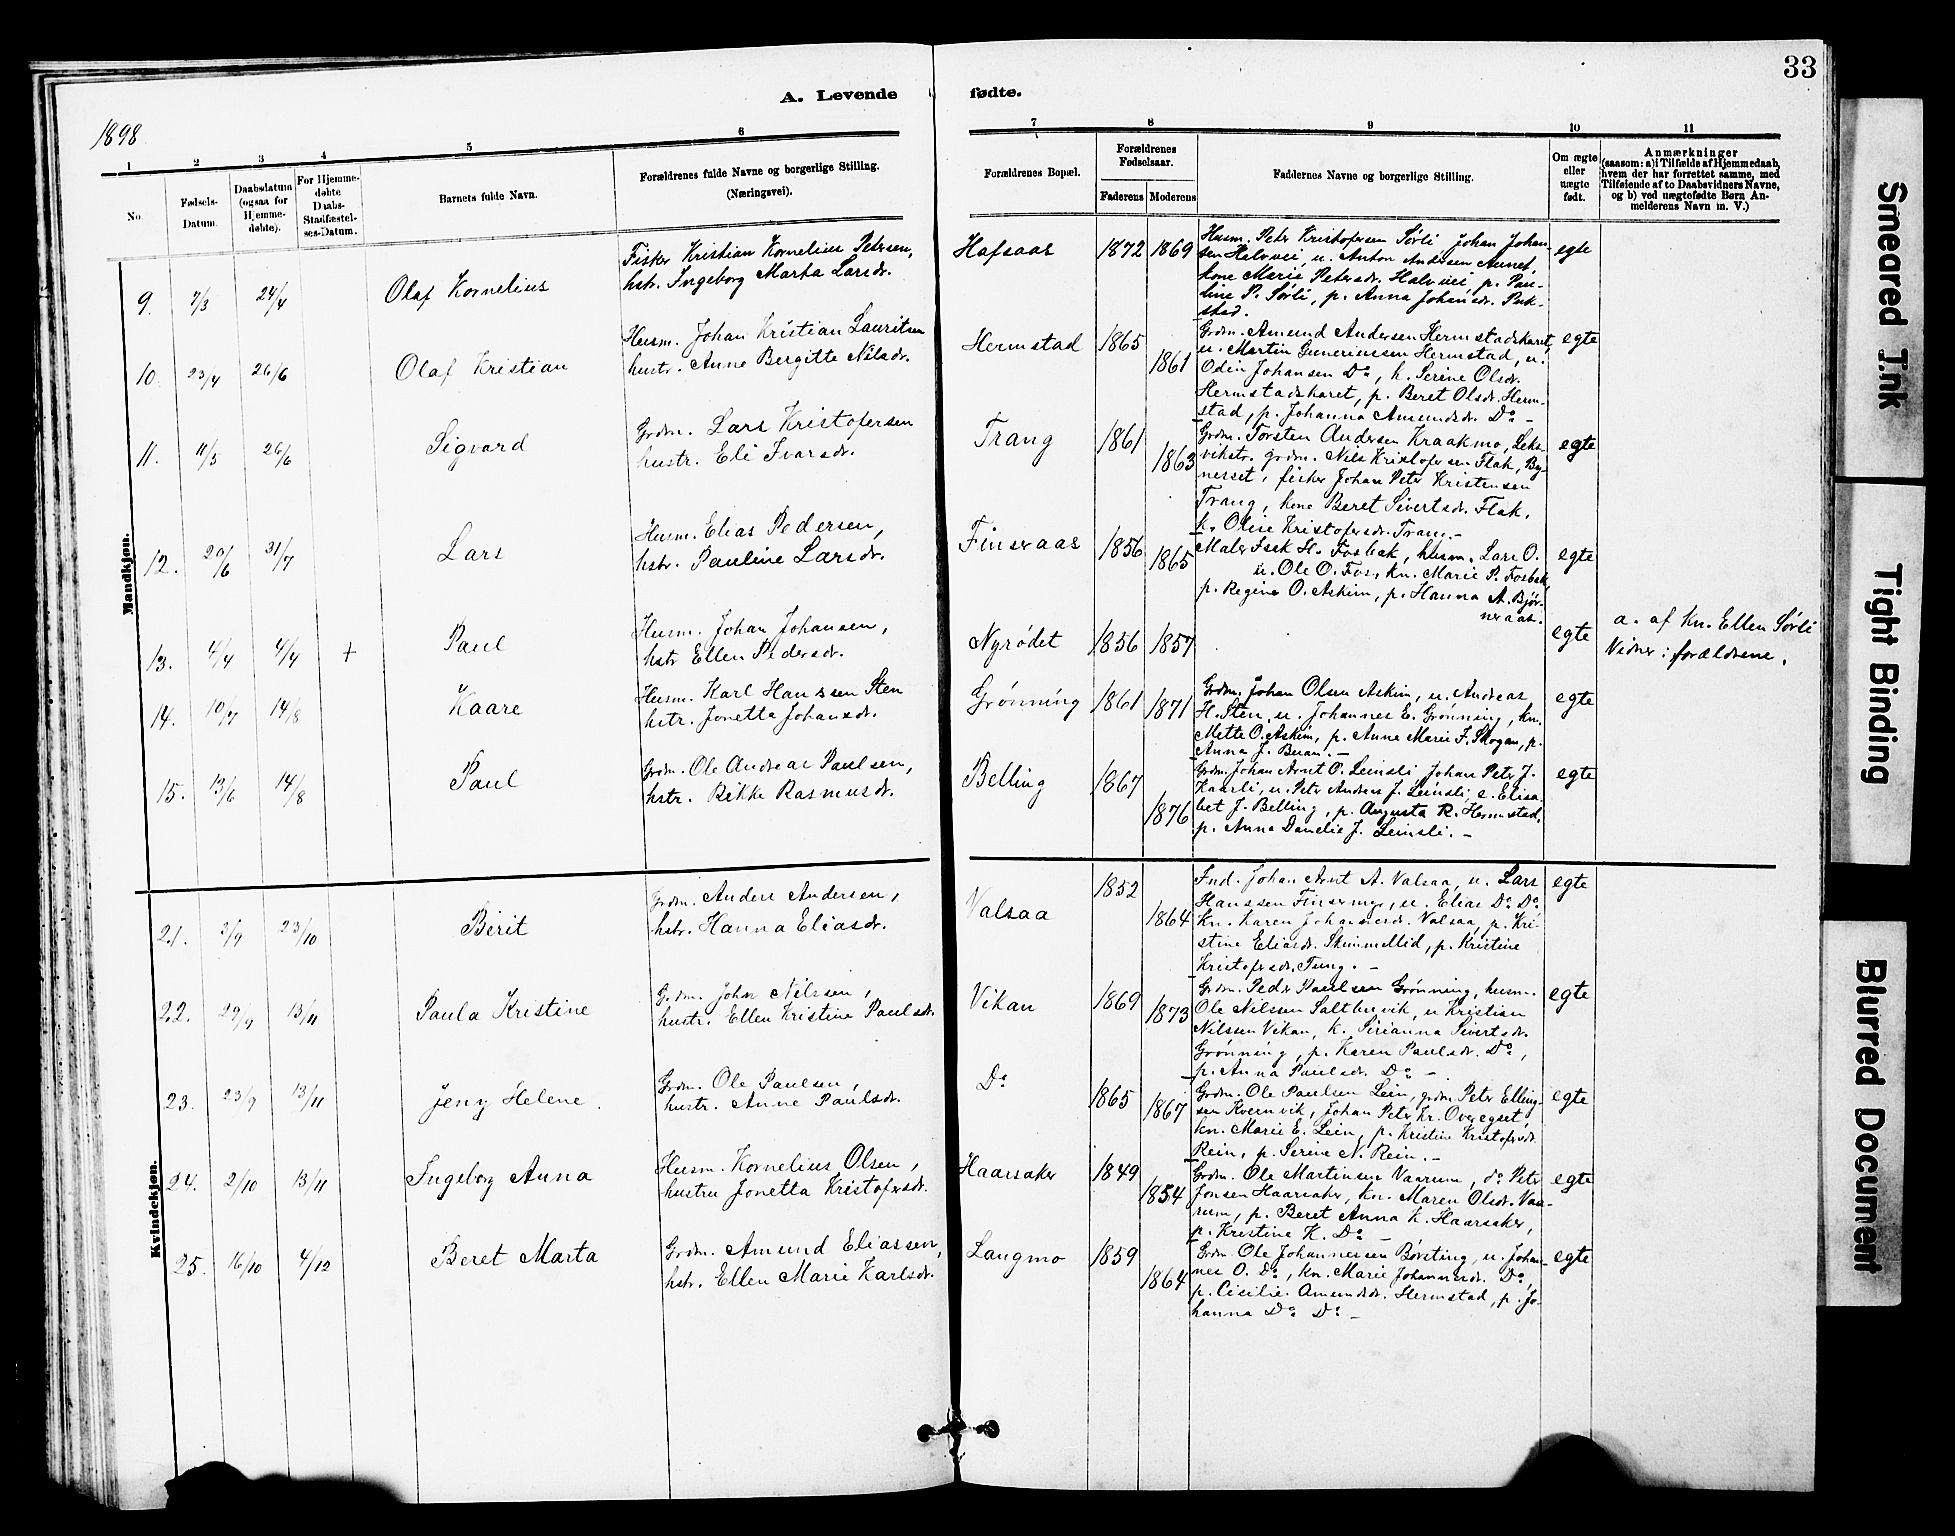 33
A. Levende fødte.
1898
1 2 3 4 5 6 7 8 9 10 11
No.
Fødsels-Datum.
Daabsdatum (ogsaa for Hjemme-døbte).
For Hjemme-døbte Daabs-Stadfæstel-ses-Datum.
Barnets fulde Navn.
Forældrenes fulde Navne og borgerlige Stilling.
(Næringsvei).
Forældrenes Bopæl.
Forældrenes Fødselsaar.
Faderens Moderens
Faddernes Navne og borgerlige Stilling.
Om ægte eller uægte født.
Anmærkninger
(saasom: a) i Tilfælde af Hjemmedaab,
hvem der har forrettet samme, med
Tilføiende af to Daabsvidners Navne,
og b) ved uægtefødte Børn An-
melderens Navn m. V.)
Mandkjøn.
9. 7/3 24/4 Olaf Kornelius
Fisker Kristian Kornelius Petersen,
hstr. Ingeborg Marta Larsdr.
Hafsaas 1872 1869
Husm. Peter Kristofersen Sørli Johan Johan-
sen Helvvei, u. Anton Andersen Aunet,
kone Marie Petersdr. Halvvei, p. Pau-
line P. Sørli, p. Anna Johansdr. Puk-
stad.
egte
10. 23/4 26/6 Olaf Kristian
Husm. Johan Kristian Lauritsen
hustr. Anne Bergitte Nilsdr.
Hermstad 1865 1861
Grdm. Amund Andersen Hermstadskaret,
u. Martin Gunerinssen Hermstad, u.
Odin Johansen Do, k. Serine Olsdr.
Hermstadskaret, p. Beret Olsdr. Herm-
stad, p. Johanna Amundsdr. Do -
egte
11. 11/5 26/6 Sigvard
Grdm. Lars Kristofersen
hustr. Eli Ivarsdr.
Trang 1861 1863
Grdm. Torsten Andersen Kraakmo, Leks-
vikstr. grdm. Nils Kristofersen Flak, By-
nesset, fisker Johan Peter Kristensen
Trang, kone Beret Sivertsdr. Flak,
k. Oline Kristofersdr. Trang. -
egte
12. 20/6 31/7 Lars
Husm. Elias Pedersen,
hstr. Pauline Larsdr.
Finseraas 1856 1865
Maler Isak H. Fosbak, husm. Lars O.
u. Ole O. Fos, kn. Marie P. Fosbak,
p. Regine O. Askim, p. Hanna A. Bjør-
neraas.
egte
13. 4/4 4/4 + Paul
Husm. Johan Johansen,
hstr Ellen Pedersdr.
Nyrødet 1856 1857
egte
a. af kn. Ellen Sørli
Vidner: forældrene.
14. 10/7 14/8 Kaare
Husm. Karl Hanssen Sten
hstr. Jonetta Johansdr.
Grønning 1861 1871
Grdm. Johan Olsen Askim, u. Andreas
H. Sten, u. Johannes E. Grønning, kn.
Mette O. Askim, p. Anne Marie F. Skogan, p.
Anna J. Buan. -
egte
15. 13/6 14/8 Paul
Grdm. Ole Andreas Paulsen,
hstr. Rikke Rasmusdr.
Belling 1867 1876
Grdm. Johan Arnt O. Leinsli, Johan Peter J.
Kaarli, u. Peter Andreas J. Leinsli, e. Elisa-
bet J. Belling, p. Augusta R. Hermstad,
p. Anna Danelie J. Leinsli. -
egte
Kvindekjøn.
21. 2/9 23/10 Berit
Grdm. Anders Andersen,
hstr. Hanna Eliasdr.
Valsaa 1852 1864
Ind. Johan Arnt A. Valsaa, u. Lars
Hanssen Finsermyr, u. Elias Do Do,
kn. Karen Johannesdr. Valsaa, p. Kri-
stine Eliasdr. Skimmellid, p. Kristine
Kristofersdr. Tung. -
egte
22. 29/9 13/11 Paula Kristine
Grdm. Johan Nilssen,
hustr. Ellen Kristine Paulsdr.
Vikan 1869 1873
Grdm. Peder Paulsen Grønning, husm.
Ole Nilssen Saltbuvik, u Kristian
Nilssen Vikan, k. Sirianna Sivertsdr.
Grønning, p. Karen Paulsdr. Do,
p. Anna Paulsdr. Do -
egte
23. 23/9 13/11 Jeny Helene
Grdm. Ole Paulsen,
hustr. Anne Paulsdr.
Do 1865 1867
Grdm. Ole Paulsen Lein, grdm Peter Elling-
sen Kvernvik, Johan Peter Kr. Overegset,
kn. Marie E. Lein, p. Kristine Kristofersdr.
Rein, p. Serine N. Rein. -
egte
24. 2/10 13/11 Ingeborg Anna
Husm. Kornelius Olsen,
hustru Jonetta Kristofersdr.
Haarsaker 1849 1854
Grdm. Ole Martinsen Vaarum, do Peter
Jonsen Haarsaker, kn. Maren Olsdr. Vaa-
rum, p. Beret Anna K. Haarsaker,
p. Kristine K. Do -
egte
25. 16/10 4/12 Beret Marta
Grdm. Amund Eliassen,
hstr. Ellen Marie Karlsdr.
Langmo 1859 1864
Grdm. Ole Johannessen Børsting, u. Johan-
nes O. Do, kn. Marie Johannesdr. Do,
p. Cicilie Amundsdr. Hermstad, p. Jo-
hanna Do Do -
egte
Smeared Ink
Tight Binding
Blurred Document